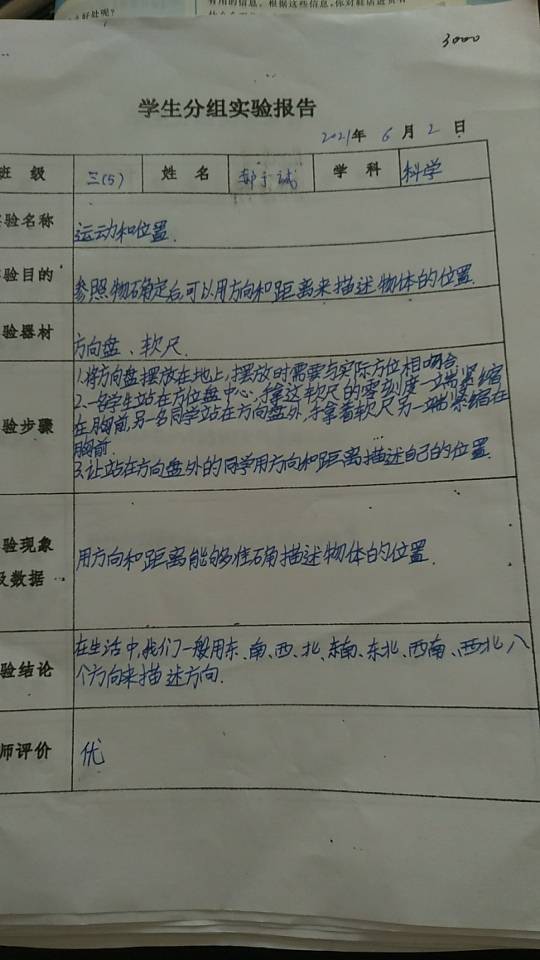 好处呢?
有用的信息。根据这些信息,你对
3000
学生分组实验报告
2021年 6 月 2 日
班 级 三(5) 姓 名 学 科 科学
验名称 运动和位置.
验目的 参照物确定后,可以用方向和距离来描述物体的位置.
验器材 方向盘、软尺.
1.将方向盘摆放在地上,摆放时需要与实际方位相吻合
2.一名学生站在方位盘中心,手拿这软尺的零刻度一端紧缩
在胸前,另一名同学站在方向盘外,手拿着软尺另一端紧缩在
验步骤 胸前.
3.让站在方向盘外的同学用方向和距离描述自己的位置.
验现象
用方向和距离能够准确描述物体的位置.
及数据
在生活中,我们一般用东、南、西、北、东南、东北、西南、西北八
验结论 个方向来描述方向.
师评价 优